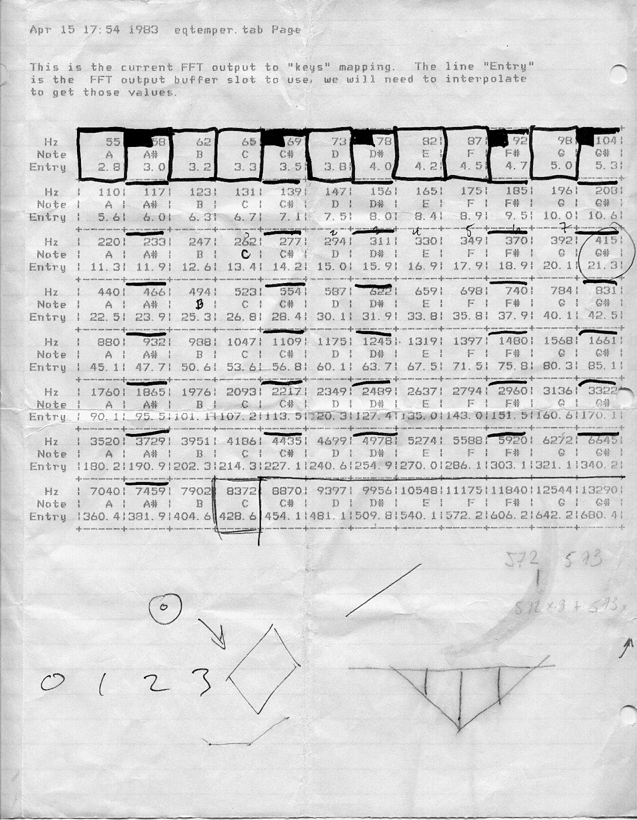 Apr 15 17:54 1983 eqtemper.tab Page
This is the current FFT output to "keys" mapping. The line "Entry"
is the FFT output buffer slot to use, we will need to interpolate
to get those values.
Hz 55 58 62 65 69 73 78 82 87 92 98 104
Note A A# B C C# D D# E F F# G G#
Entry 2.8 3.0 3.2 3.3 3.5 3.8 4.0 4.2 4.5 4.7 5.0 5.3
Hz 110 117 123 131 139 147 156 165 175 185 196 208
Note A A# B C C# D D# E F F# G G#
Entry 5.6 6.0 6.3 6.7 7.1 7.5 8.0 8.4 8.9 9.5 10.0 10.6
Hz 220 233 247 262 277 294 311 330 349 370 392 415
Note A A# B C C# D D# E F F# G G#
Entry 11.3 11.9 12.6 13.4 14.2 15.0 15.9 16.9 17.9 18.9 20.1 21.3
Hz 440 466 494 523 554 587 622 659 698 740 784 831
Note A A# B C C# D D# E F F# G G#
Entry 22.5 23.9 25.3 26.8 28.4 30.1 31.9 33.8 35.8 37.9 40.1 42.5
Hz 880 932 988 1047 1109 1175 1245 1319 1397 1480 1568 1661
Note A A# B C C# D D# E F F# G G#
Entry 45.1 47.7 50.6 53.6 56.8 60.1 63.7 67.5 71.5 75.8 80.3 85.1
Hz 1760 1865 1976 2093 2217 2349 2489 2637 2794 2960 3136 3322
Note A A# B C C# D D# E F F# G G#
Entry 90.1 95.5 101.1 107.2 113.5 120.3 127.4 135.0 143.0 151.5 160.6 170.1
Hz 3520 3729 3951 4186 4435 4699 4978 5274 5588 5920 6272 6645
Note A A# B C C# D D# E F F# G G#
Entry 180.2 190.9 202.3 214.3 227.1 240.6 254.9 270.0 286.1 303.1 321.1 340.2
Hz 7040 7459 7902 8372 8870 9397 9956 10548 11175 11840 12544 13290
Note A A# B C C# D D# E F F# G G#
Entry 360.4 381.9 404.6 428.6 454.1 481.1 509.8 540.1 572.2 606.2 642.2 680.4
572 573
0
0 1 2 3